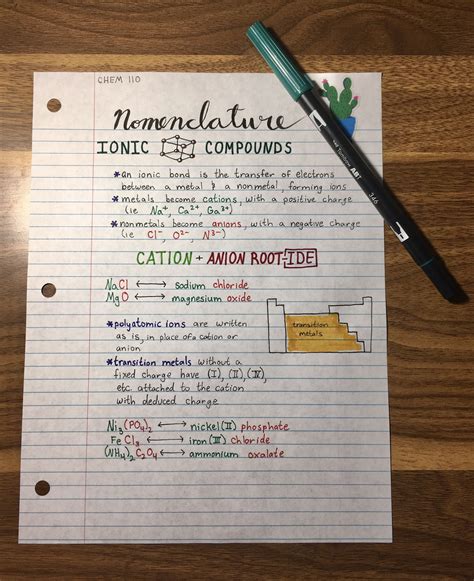 CHEM 110
Nomenclature
IONIC COMPOUNDS
*an ionic bond is the transfer of electrons
between a metal & a nonmetal, forming ions
*metals become cations, with a positive charge
(ie Na⁺, Ca²⁺, Ga³⁺)
*nonmetals become anions, with a negative charge
(ie Cl⁻, O²⁻, N³⁻)
CATION + ANION ROOT-IDE
NaCl ⟷ sodium chloride
MgO ⟷ magnesium oxide
*polyatomic ions are written
as is, in place of a cation or
anion
transition
metals
*transition metals without a
fixed charge have (I), (II), (IV),
etc. attached to the cation
with deduced charge
Ni₃(PO₄)₂ ⟷ nickel (II) phosphate
FeCl₃ ⟷ iron (III) chloride
(NH₄)₂C₂O₄ ⟷ ammonium oxalate
ART
346